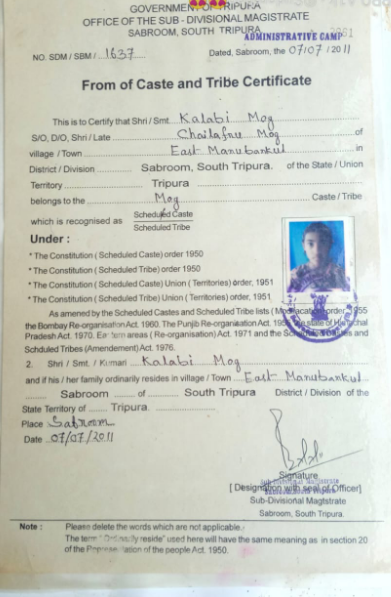 GOVERNMENT OF TRIPURA
OFFICE OF THE SUB - DIVISIONAL MAGISTRATE
SABROOM, SOUTH TRIPURA
ADMINISTRATIVE CAMP
NO. SDM / SBM / 1637 Dated, Sabroom, the 07/07 / 2011
From of Caste and Tribe Certificate
This is to Certify that Shri / Smt. Kalabi Mog
S/O, D/O, Shri / Late Chailafru Mog of
village / Town East Manubankul in
District / Division Sabroom, South Tripura. of the State / Union
Territory Tripura
belongs to the Mog Caste / Tribe
which is recognised as Scheduled Caste
Scheduled Tribe
Under :
* The Constitution ( Scheduled Caste) order 1950
* The Constitution ( Scheduled Tribe) order 1950
* The Constitution ( Scheduled Caste) Union ( Territories) order, 1951
* The Constitution ( Scheduled Tribe) Union ( Territories) order, 1951
As amened by the Scheduled Castes and Scheduled Tribe lists ( order, 1955
the Bombay Re-organisation Act. 1960. The Punjib Re-organisation Act. state of Himachal
Pradesh Act. 1970. Eastern areas ( Re-organisation) Act. 1971 and the Castes and
Schduled Tribes (Amendement) Act. 1976.
2. Shri / Smt. / Kumari Kalabi Mog
and if his / her family ordinarily resides in village / Town East Manubankul
Sabroom of South Tripura District / Division of the
State Territory of Tripura.
Place Sabroom
Date 07/07/2011
Signature
Sub-Divisional Magistrate
[ Designation with seal of Officer]
Sub-Divisional Magtstrate
Sabroom, South Tripura.
Note : Please delete the words which are not applicable.
The term "Ordinarily reside" used here will have the same meaning as in section 20
of the Representation of the people Act. 1950.